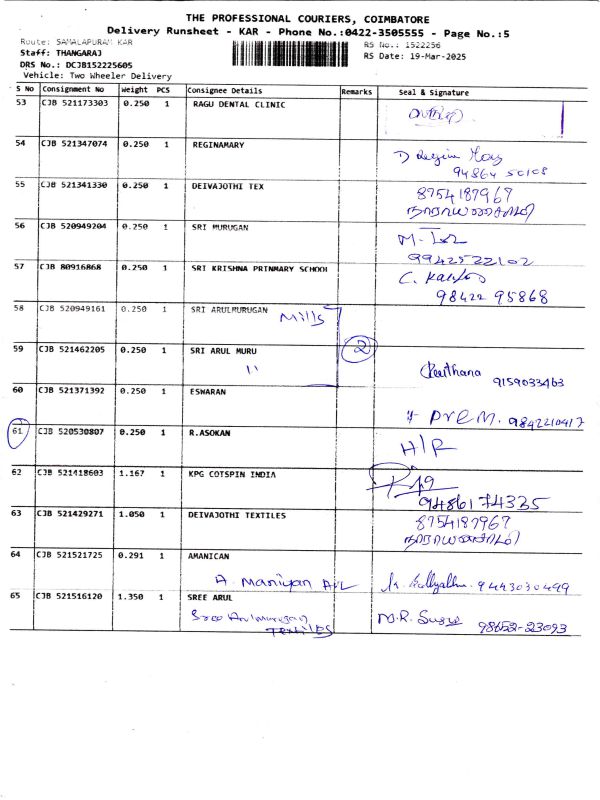 THE PROFESSIONAL COURIERS, COIMBATORE
Delivery Runsheet - KAR - Phone No.:0422-3505555 - Page No.:5
Route: SAMALAPURAM KAR RS No.: 1522256
Staff: THANGARAJ RS Date: 19-Mar-2025
DRS No.: DCJB152225605
Vehicle: Two Wheeler Delivery
S No Consignment No Weight PCS Consignee Details Remarks Seal & Signature
53 CJB 521173303 0.250 1 RAGU DENTAL CLINIC
54 CJB 521347074 0.250 1 REGINAMARY
94864 50108
55 CJB 521341330 0.250 1 DEIVAJOTHI TEX 8754187967
நாராயணசாமி
56 CJB 520949204 0.250 1 SRI MURUGAN
9942522102
57 CJB 80916868 0.250 1 SRI KRISHNA PRINMARY SCHOOl
98422 95868
58 CJB 520949161 0.250 1 SRI ARULMURUGAN
Mills
59 CJB 521462205 0.250 1 SRI ARUL MURU 2
" Keerthana 9159033463
60 CJB 521371392 0.250 1 ESWARAN
PreM. 9842210417
61 CJB 520530807 0.250 1 R.ASOKAN H/R
62 CJB 521418603 1.167 1 KPG COTSPIN INDIA
9486174335
63 CJB 521429271 1.050 1 DEIVAJOTHI TEXTILES 8754187967
நாராயணசாமி
64 CJB 521521725 0.291 1 AMANICAN
A. Maniyan 9443030499
65 CJB 521516120 1.350 1 SREE ARUL
Sree Arulmurugan M.R. 98652-23093
Textiles